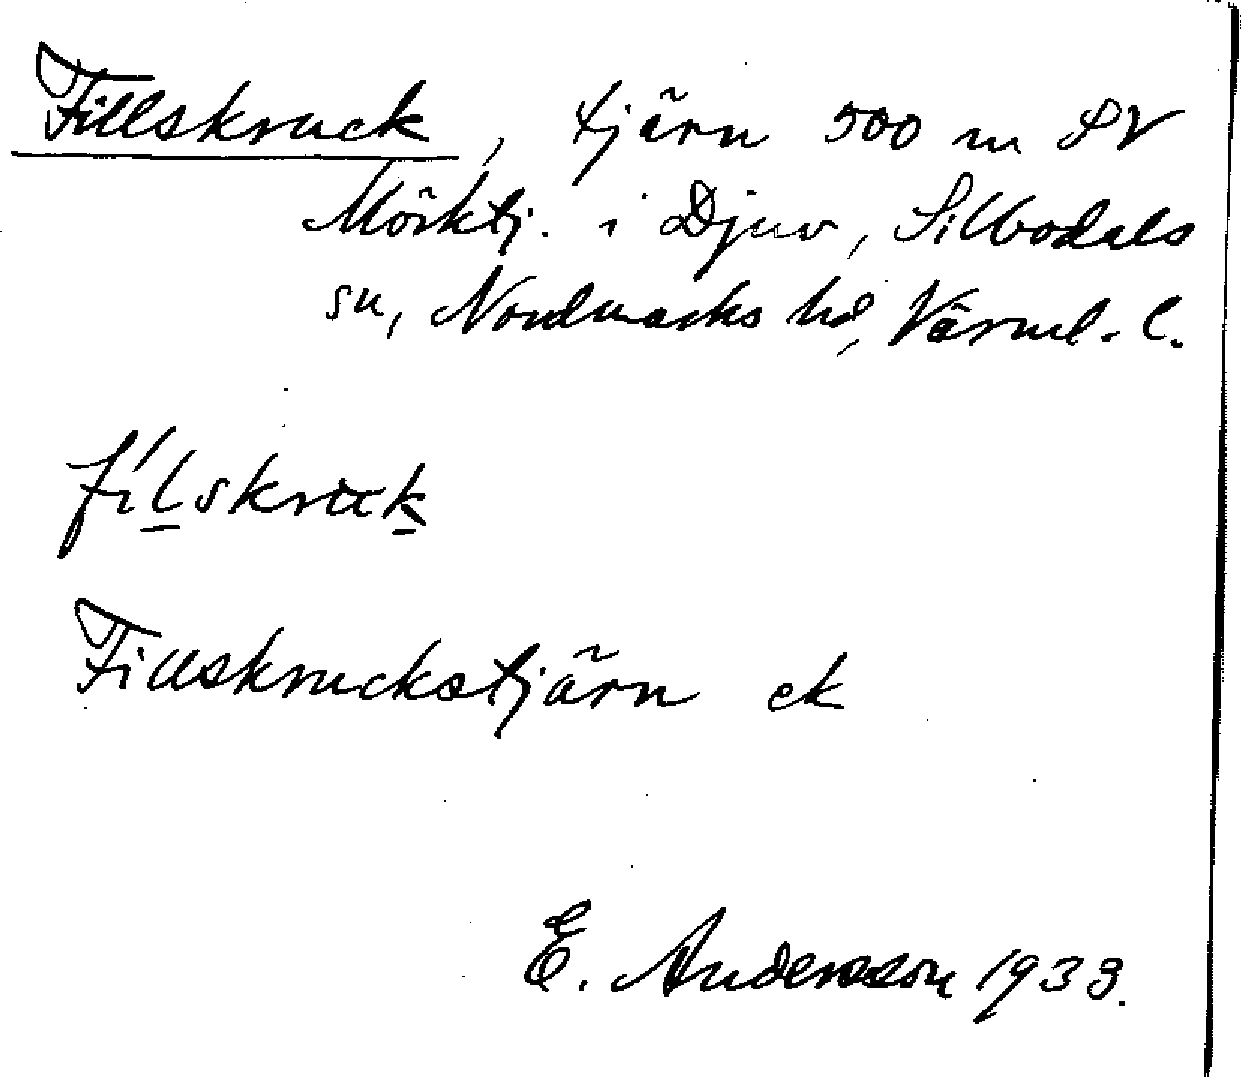 Fillskruck, tjärn 500 m SV
Mörktj. i Djuv, Silbodals
sn, Nordmarks hd, Värml. l.
fílskruk
Fillskruckstjärn ek
E. Andersson 1933.